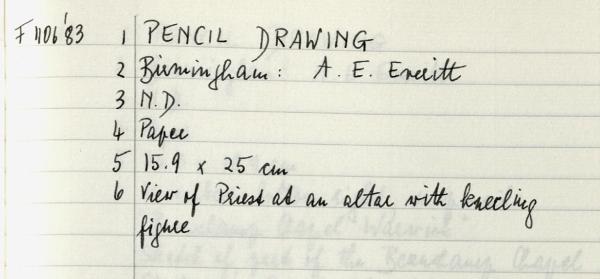 F 1106'83 1 PENCIL DRAWING
2 Birmingham: A. E. Everitt
3 N.D.
4 Paper
5 15.9 x 25 cm
6 View of Priest at an altar with kneeling
figure